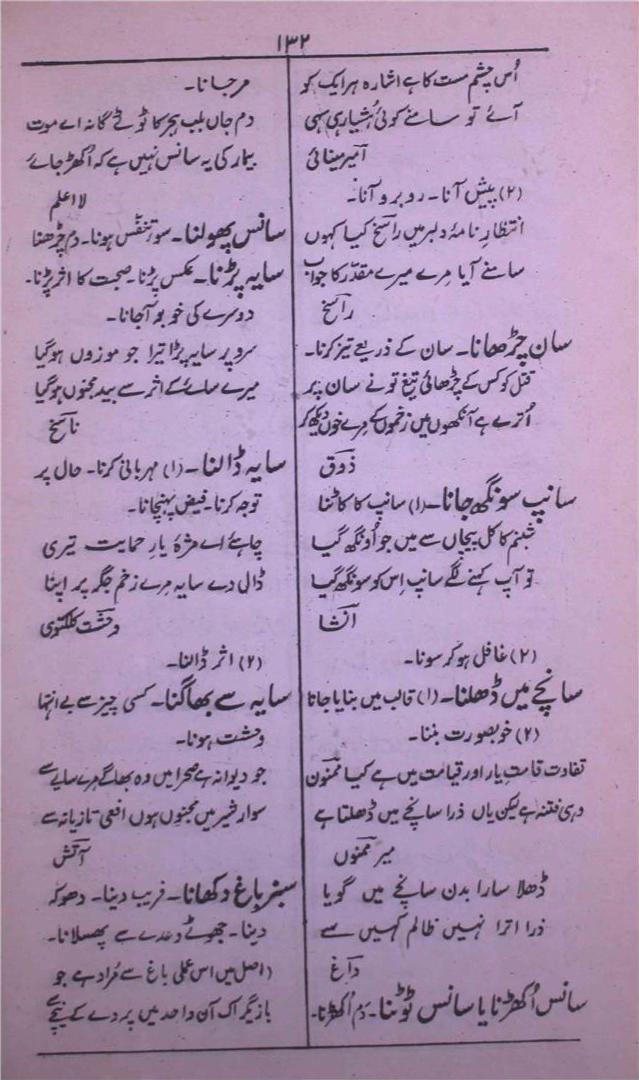 ۱۳۲
اُس چشمِ مست کا ہے اشارہ ہر ایک کو
آئے تو سامنے کوئی ہُشیار ہی سہی
امیر مینائی
(۲) پیش آنا۔ روبرو آنا۔
انتظارِ نامۂ دلبر میں راسخ کیا کہوں
سامنے آیا مرے میرے مقدّر کا جواب
راسخ
سان چڑھانا۔ سان کے ذریعے تیز کرنا۔
قتل کو کس کے چڑھائی تیغ تو نے سان پر
اُترے ہے آنکھوں میں زخموں کے مرے خوں دیکھ کر
ذوق
سانپ سونگھ جانا۔ (۱) سانپ کا کاٹنا
شبنم کا کل پیچاں سے میں جو اُونگھ گیا
تو آپ کہنے لگے سانپ اِس کو سونگھ گیا
انشا
(۲) غافل ہو کر سونا۔
سانچے میں ڈھلنا۔ (۱) قالب میں بنایا جانا
(۲) خوبصورت بننا۔
تفاوت قامتِ یار اور قیامت میں ہے کیا ممنون
وہی فتنہ ہے لیکن یاں ذرا سانچے میں ڈھلتا ہے
میر ممنوں
ڈھلا سارا بدن سانچے میں گویا
ذرا اترا نہیں ظالم کہیں سے
داغ
سانس اُکھڑنا یا سانس ٹوٹنا۔ دَم اُکھڑنا۔
مر جانا۔
دم جاں بلب ہجر کا ٹوٹے گا نہ اے موت
بیمار کی یہ سانس نہیں ہے کہ اُکھڑ جائے
لا اعلم
سانس پھولنا۔ سوءِ تنفّس ہونا۔ دم چڑھنا
سایہ پڑنا۔ عکس پڑنا۔ صحبت کا اثر پڑنا۔
دوسرے کی خو بو آجانا۔
سرو پر سایہ پڑا تیرا جو موزوں ہوگیا
میرے سائے کے اثر سے بید مجنوں ہوگیا
ناسخ
سایہ ڈالنا۔ (۱) مہربانی کرنا۔ حال پر
توجہ کرنا۔ فیض پہنچانا۔
چاہئے اے مژۂ یار حمایت تیری
ڈال دے سایہ مرے زخم جگر پر اپنا
وحشت کلکتوی
(۲) اثر ڈالنا۔
سایہ سے بھاگنا۔ کسی چیز سے بے انتہا
وحشت ہونا۔
جو دیوانہ ہے صحرا میں وہ بھاگے مرے سایے سے
سوار شیر میں مجنوں ہوں افعی تازیانہ سے
آتش
سبز باغ دکھانا۔ فریب دینا۔ دھوکہ
دینا۔ جھوٹے وعدے سے پھسلانا۔
(اصل میں اس عملی باغ سے مُراد ہے جو
بازیگر اک آن واحد میں پردے کے نیچے سے